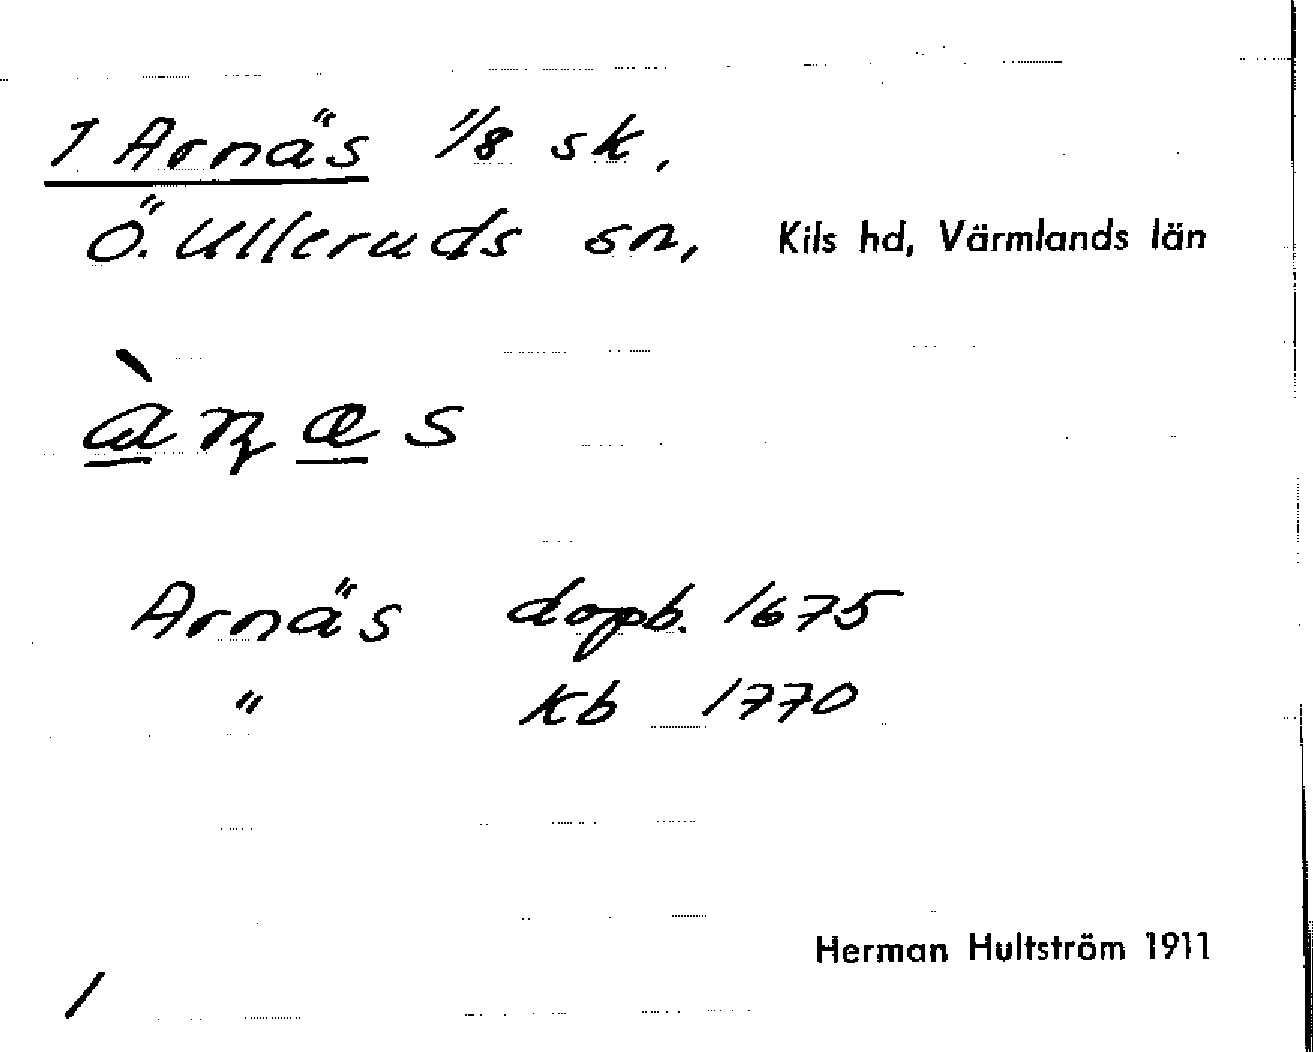 1 Arnäs 1/8 sk,
Ö. Ulleruds sn, Kils hd, Värmlands län
à̱ɳæ̱s
Arnäs dopb. 1675
" Kb 1770
Herman Hultström 1911
/